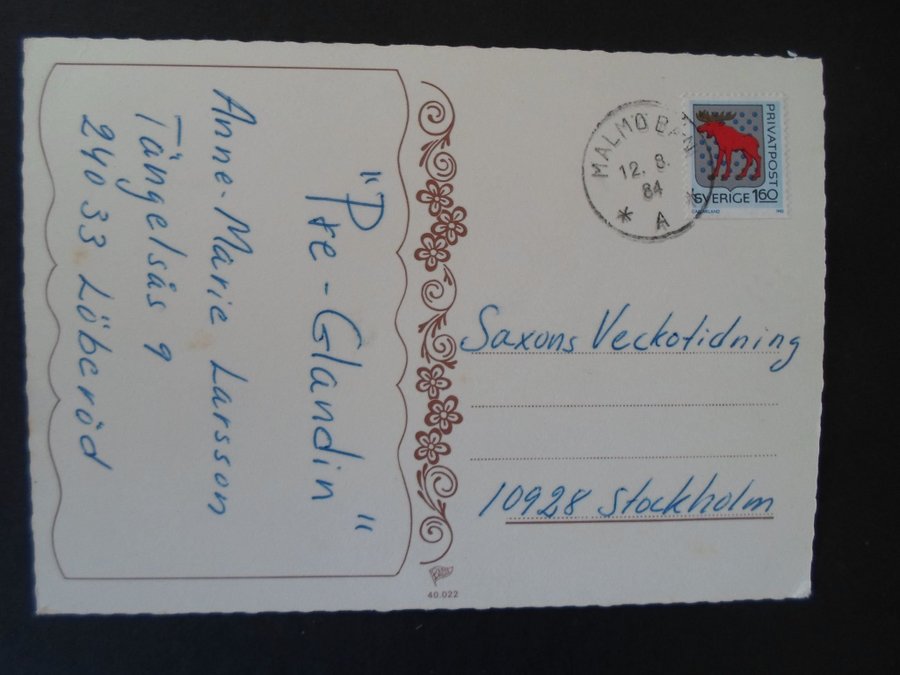 "Pre-Glandin"
Anne-Marie Larsson
Tängelsås 9
240 33 Löberöd
MALMÖ BAN
12. 8.
84
* A *
PRIVATPOST
SVERIGE 160
Saxons Veckotidning
10928 Stockholm
40.022